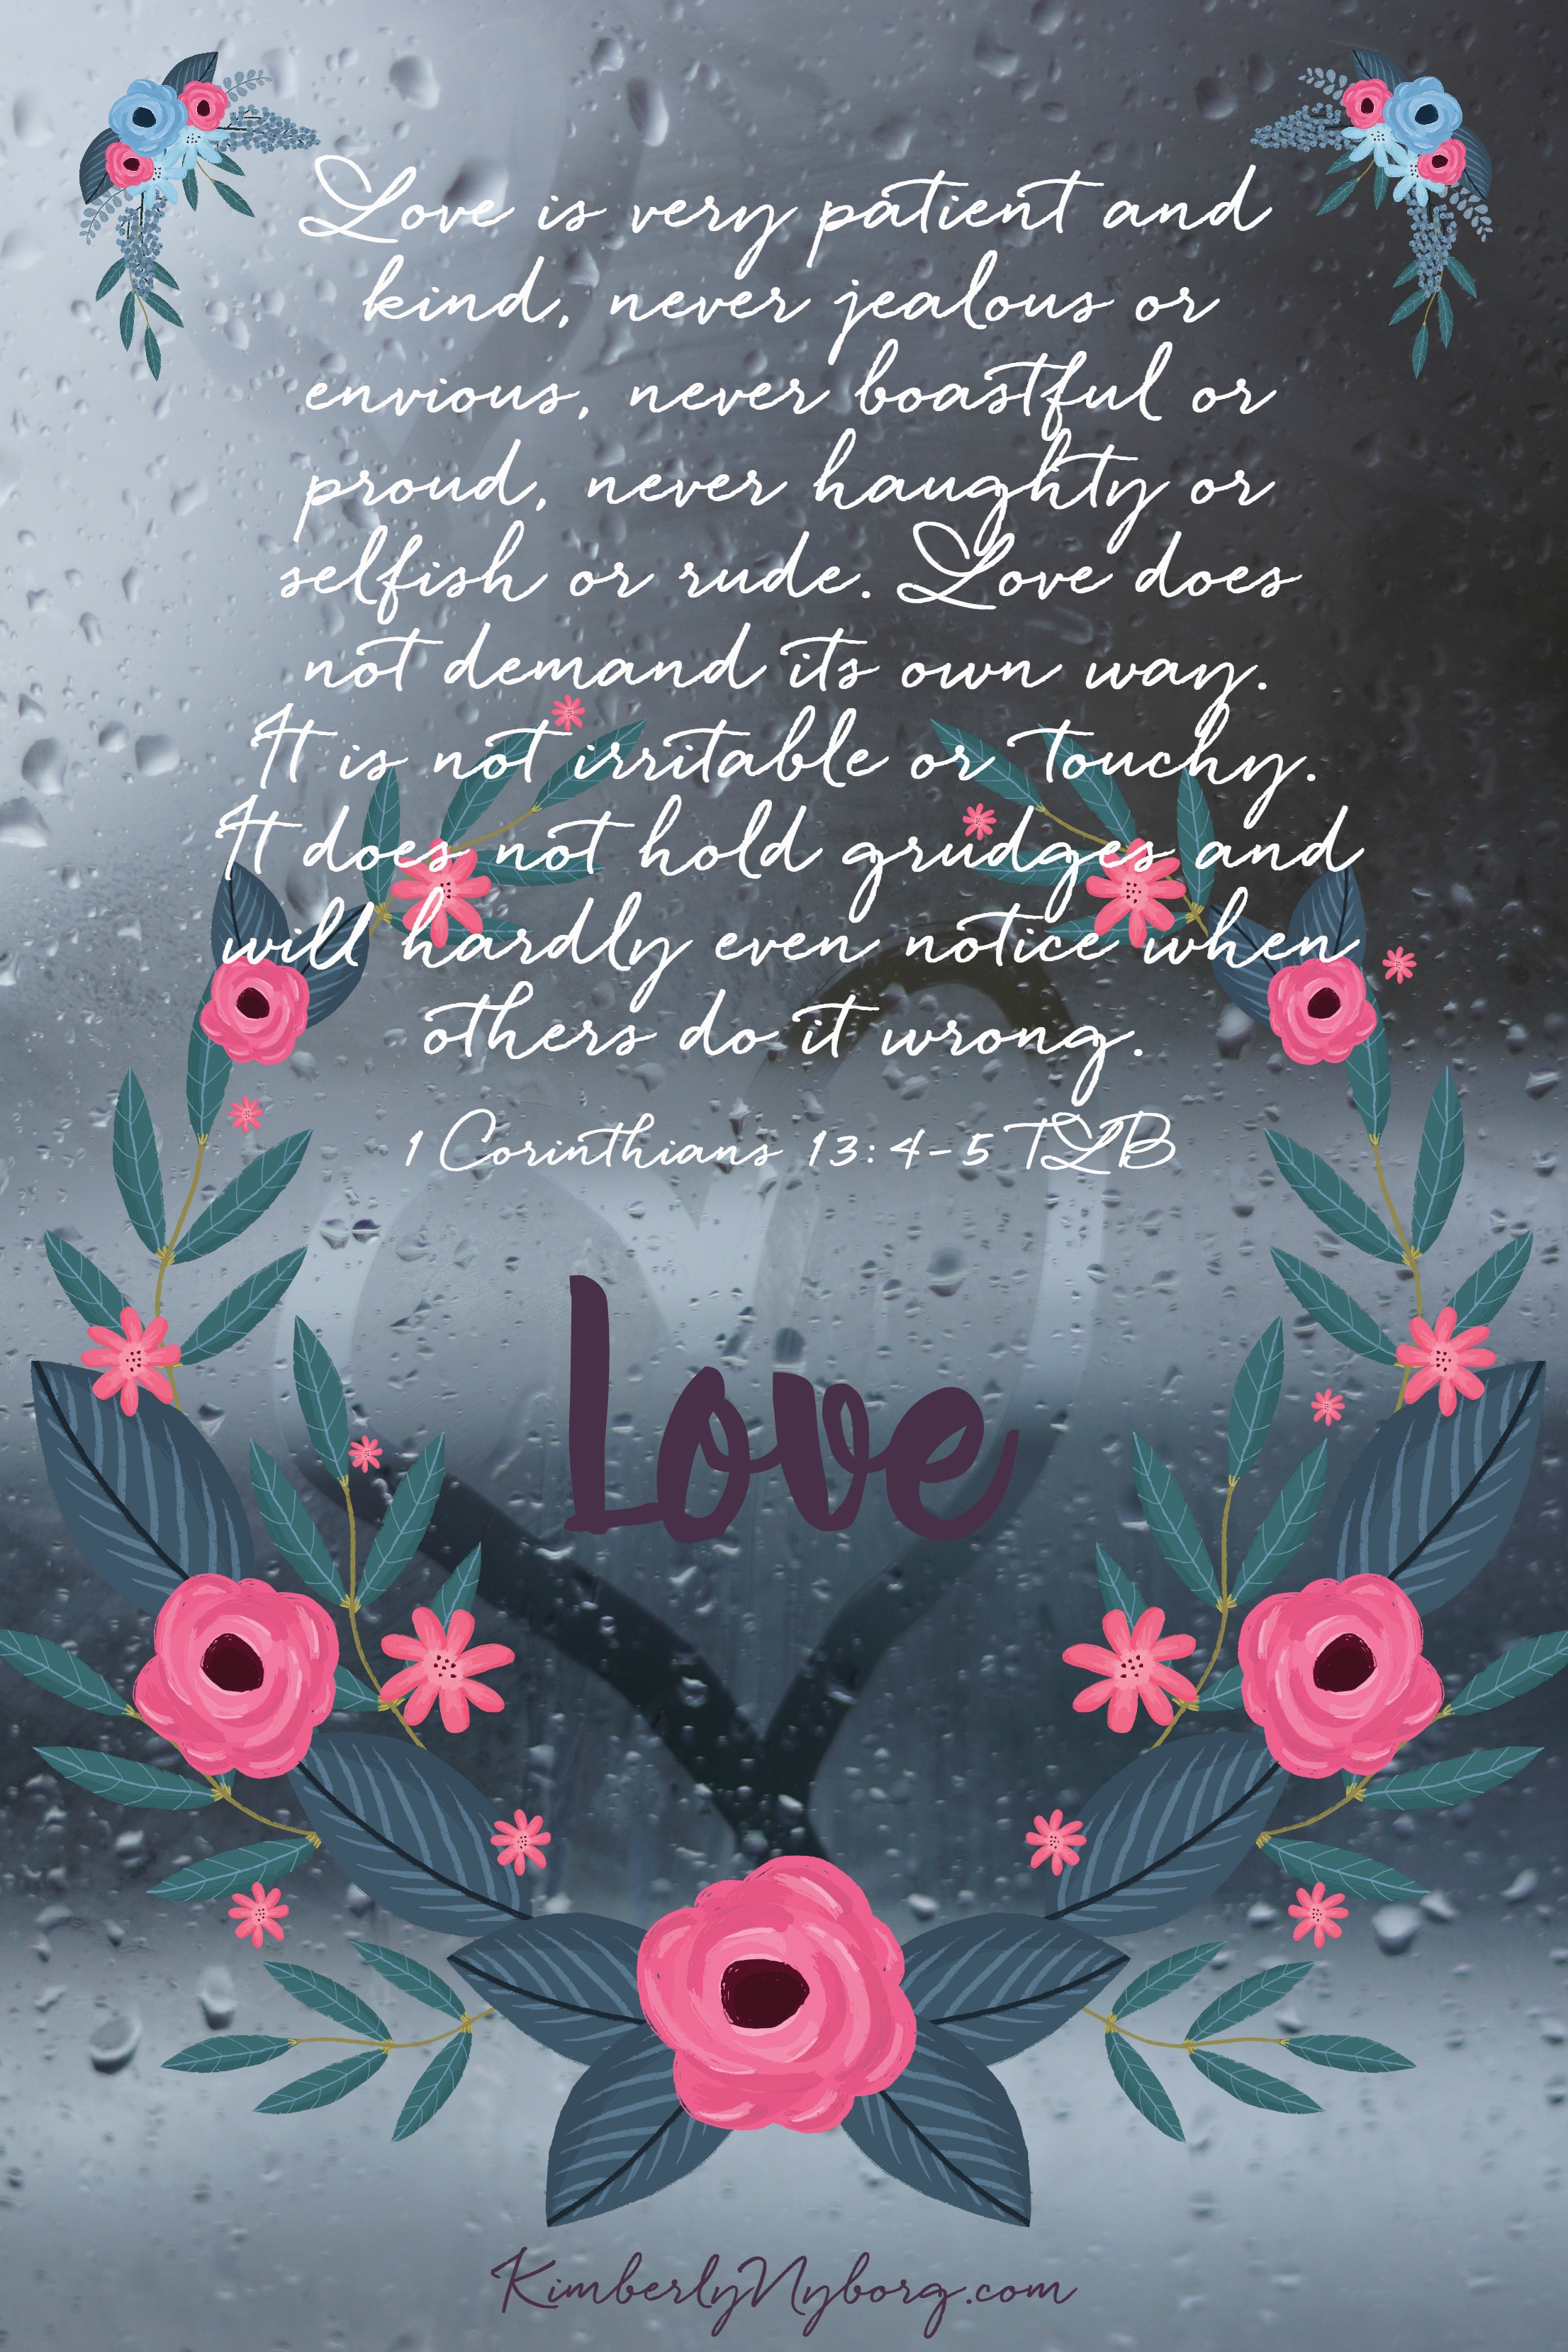 Love is very patient and
kind, never jealous or
envious, never boastful or
proud, never haughty or
selfish or rude. Love does
not demand its own way.
It is not irritable or touchy.
It does not hold grudges and
will hardly even notice when
others do it wrong.
1 Corinthians 13:4-5 TLB
Love
KimberlyNyborg.com